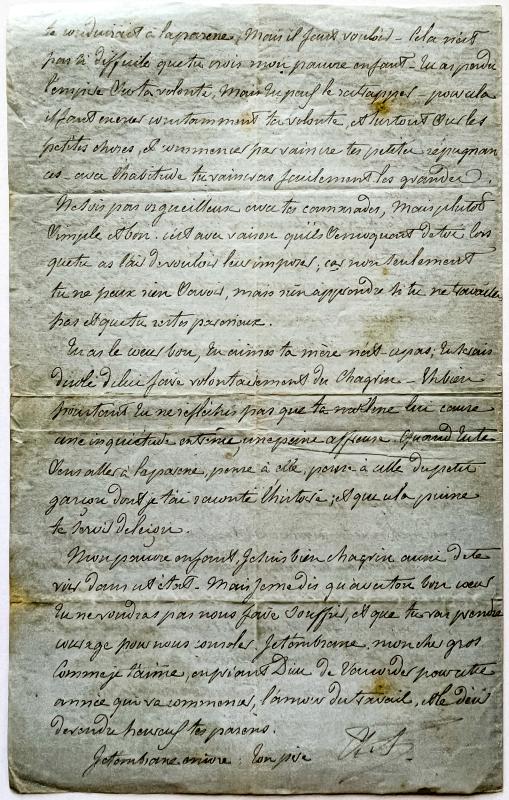 te conduirait à la paresse, Mais il faut vouloir – Cela n'est
pas si difficile que tu crois mon pauvre enfant – tu as perdu
l'empire sur ta volonté, Mais tu peux le rattapper – pour cela
il faut exercer constamment ta volonté, et surtout sur les
petites choses, et commencer par vaincre tes petites repugnan
ces – avec l'habitude tu vaincras facilement les grandes.
Ne sois pas orgueilleux avec tes camarades, Mais plutôt
Simple et bon. c'est avec raison qu'ils se moquent de toi lors
que tu as l'air de vouloir leur imposer, car non seulement
tu ne peux rien savoir, mais rien apprendre si tu ne travailles
pas et que tu restes paresseux.
Tu as le cœur bon, tu aimes ta mère n'est-ce pas; tu serais
désolé de lui faire volontairement du chagrin – Eh bien
pourtant tu ne réfléchis pas que ta lui cause
une inquiétude extrême, une peine affreuse. Quand tu te
sens aller à la paresse, pense à elle, pense à celle du petit
garçon dont je t'ai raconté l'histoire; et que cela puisse
te servir de leçon.
Mon pauvre enfant, Je suis bien chagrin aussi de te
voir dans cet état. Mais je me dis qu'avec ton bon cœur
tu ne voudras pas nous faire souffrir, et que tu vas prendre
courage pour nous consoler. Je t'embrasse, mon cher gros
Comme je t'aime, en priant Dieu de t'accorder pour cette
année qui va commencer, l'amour du travail, et le désir
de rendre heureux tes parens.
Je t'embrasse encore : ton père